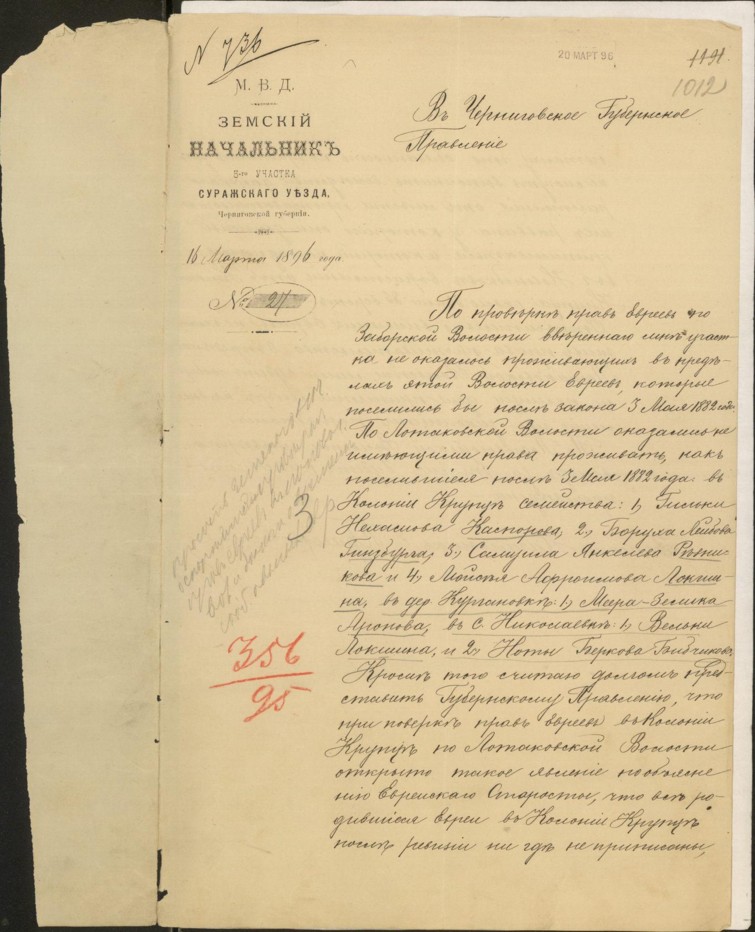 N 736
20 МАРТ 96
1191
1012
М. В. Д.
ЗЕМСКІЙ
НАЧАЛЬНИКЪ
5-го УЧАСТКА
СУРАЖСКАГО УѢЗДА,
Черниговской губерніи.
16 Марта 1896 года
№ 21
Въ Черниговское Губернское
Правленіе
По провѣркѣ правъ Евреевъ по
Заборской Волости ввѣреннаго мнѣ участ-
ка не оказалось проживающихъ въ предѣ-
лахъ этой Волости Евреевъ, которые
поселились бы послѣ закона 3 Мая 1882 года.
По Лотаковской Волости оказались не
имѣющими права проживать, какъ
поселившіеся послѣ 3 Мая 1882 года: въ
Колоніи Крупцъ семейства: 1, Гильки
Нехимова Каспорова, 2, Боруха Лейбова
Гинзбурга, 3, Самуила Янкелева Рѣзни-
кова и 4, Мойсея Афроимова Локши-
на, въ дер. Кургановкѣ: 1, Меера-Зелика
Аронова, въ с. Николаевкѣ: 1, Вельки
Локшина, и 2, Ноты Беркова
Кромѣ того считаю долгомъ пред-
ставить Губернскому Правленію, что
при повѣркѣ правъ Евреевъ въ Колоніи
Крупцѣ по Лотаковской Волости
открыто такое явленіе по объясне
нію Еврейскаго Старосты, что всѣ ро-
дившіеся Евреи въ Колоніи Крупцѣ
послѣ ревизіи ни гдѣ не приписаны,
3
356
95